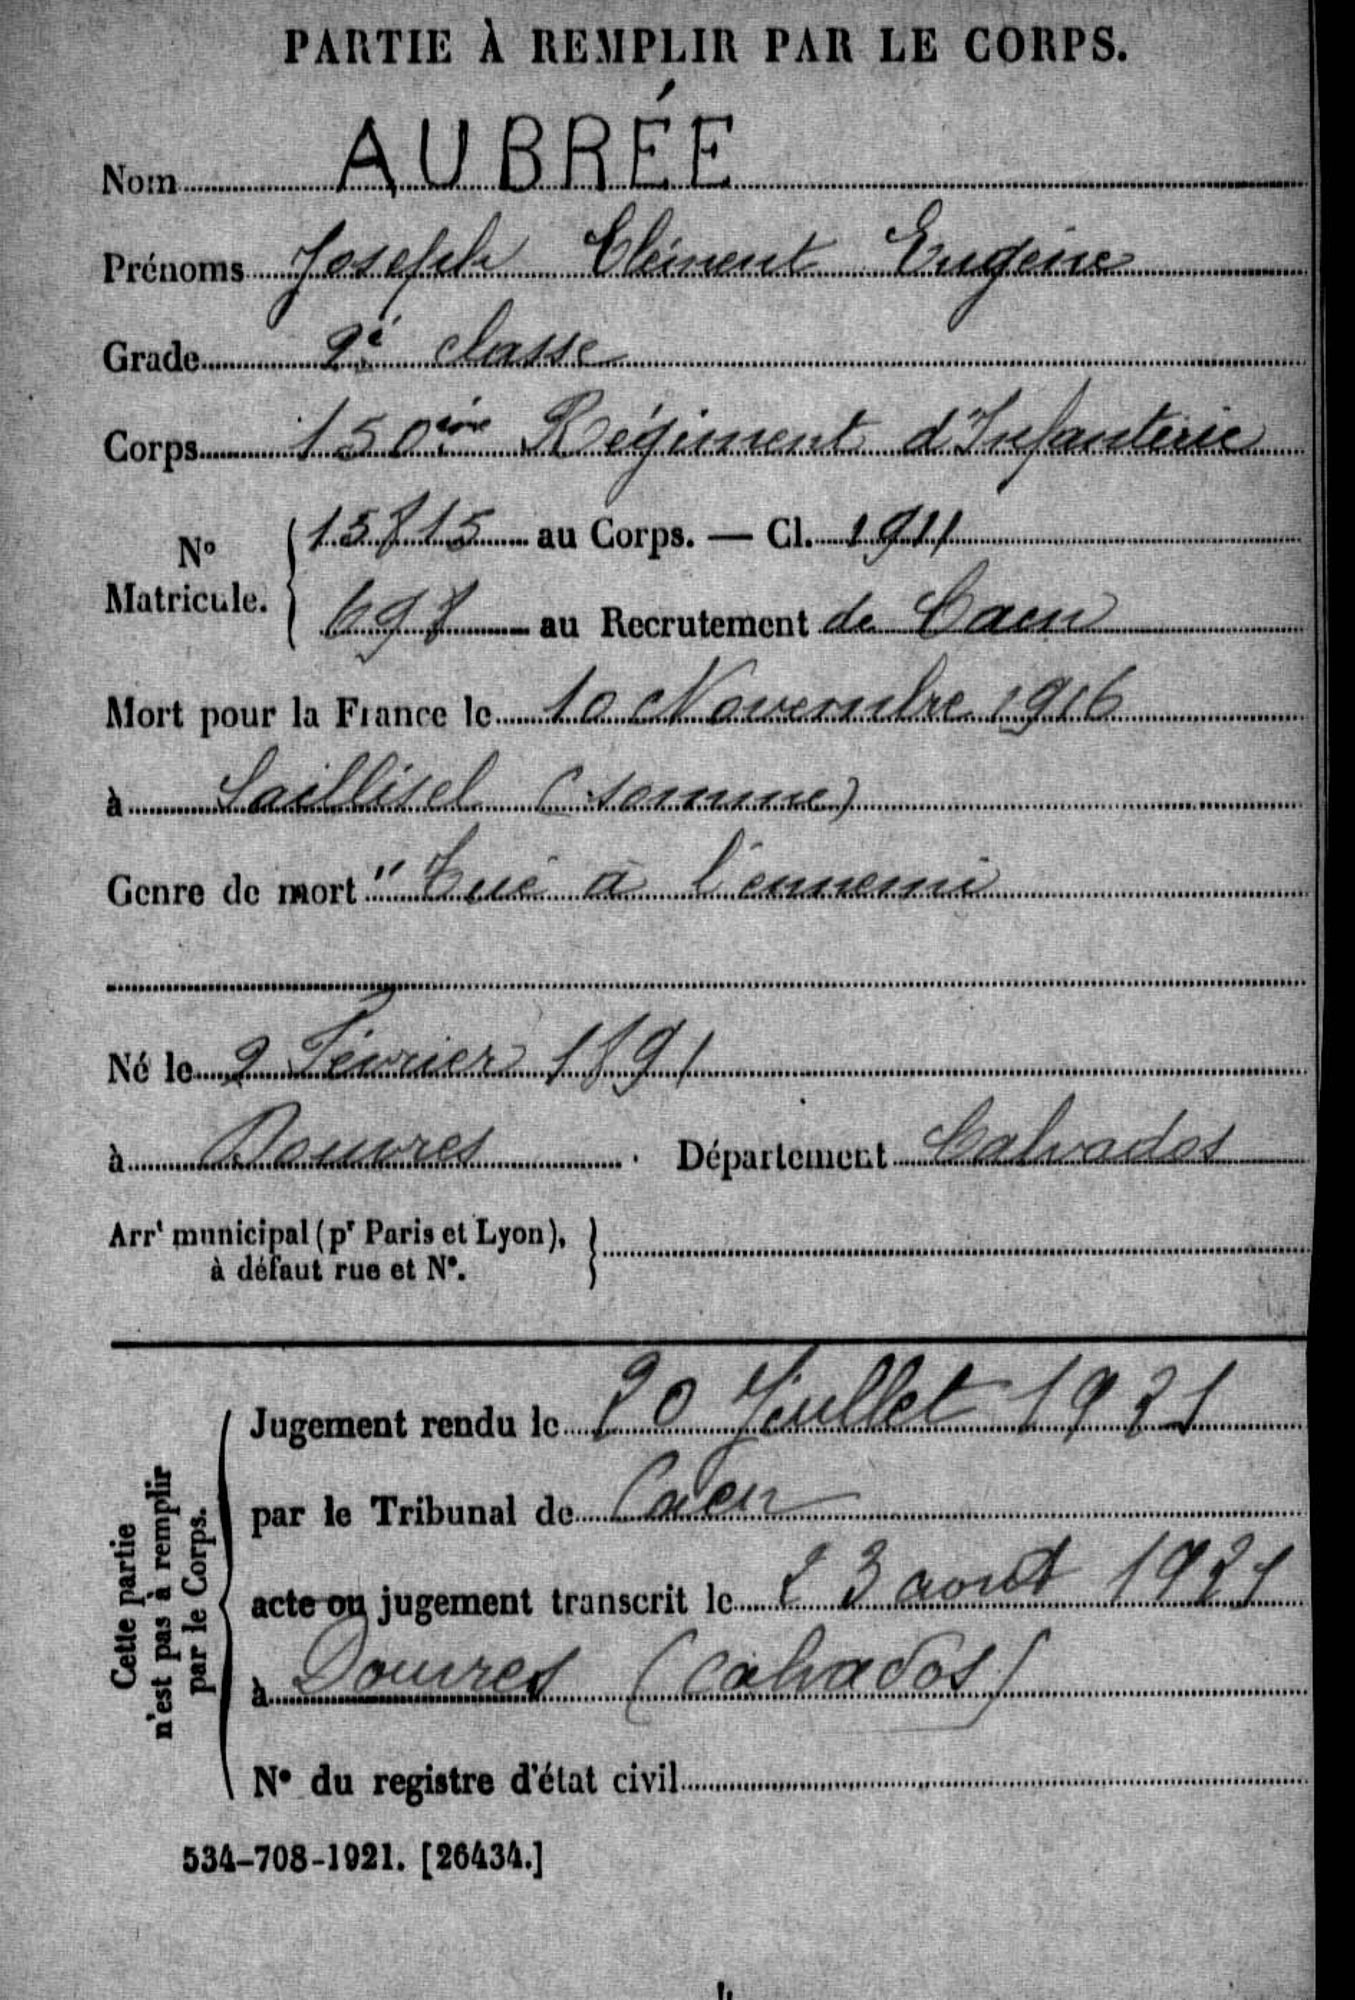 PARTIE À REMPLIR PAR LE CORPS.
Nom AUBRÉE
Prénoms Joseph Clément Eugène
Grade 2è classe
Corps 150ème Régiment d'Infanterie
No Matricule. 15815 au Corps. — Cl. 1911
698 au Recrutement de Caen
Mort pour la France le 10 Novembre 1916
à Saillisel (Somme)
Genre de mort "Tué à l'ennemi
Né le 2 Février 1891
à Douvres Département Calvados
Arrt municipal (pr Paris et Lyon),
à défaut rue et No.
Cette partie
n'est pas à remplir
par le Corps.
Jugement rendu le 20 Juillet 1921
par le Tribunal de Caen
acte ou jugement transcrit le 23 août 1921
à Douvres (Calvados)
No du registre d'état civil
534-708-1921. [26434.]